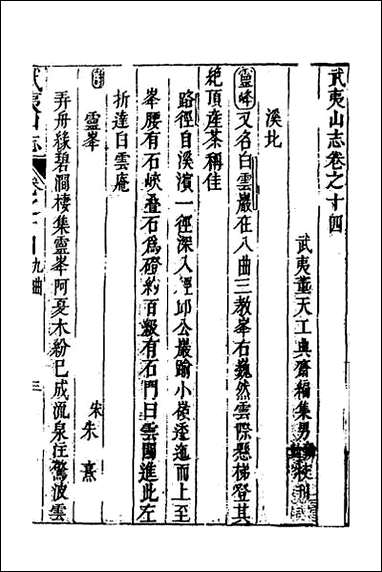 武夷山志卷之十四
武夷董天工典齋編集男 校刊
溪北
靈峰又名白雲巖在八曲三教峯右巍然雲際懸梯登其
絶頂産茶稱佳
路徑自溪濱一徑深入經邱公巖踰小嶺逶迤而上至
峯腰有石峽叠石爲磴約百級有石門曰雲關進此左
折達白雲庵
詩 靈峯
宋朱熹
弄舟緣碧澗棲集靈峯阿夏木紛已成流泉注驚波雲
武夷山志
卷之十四 九曲 三